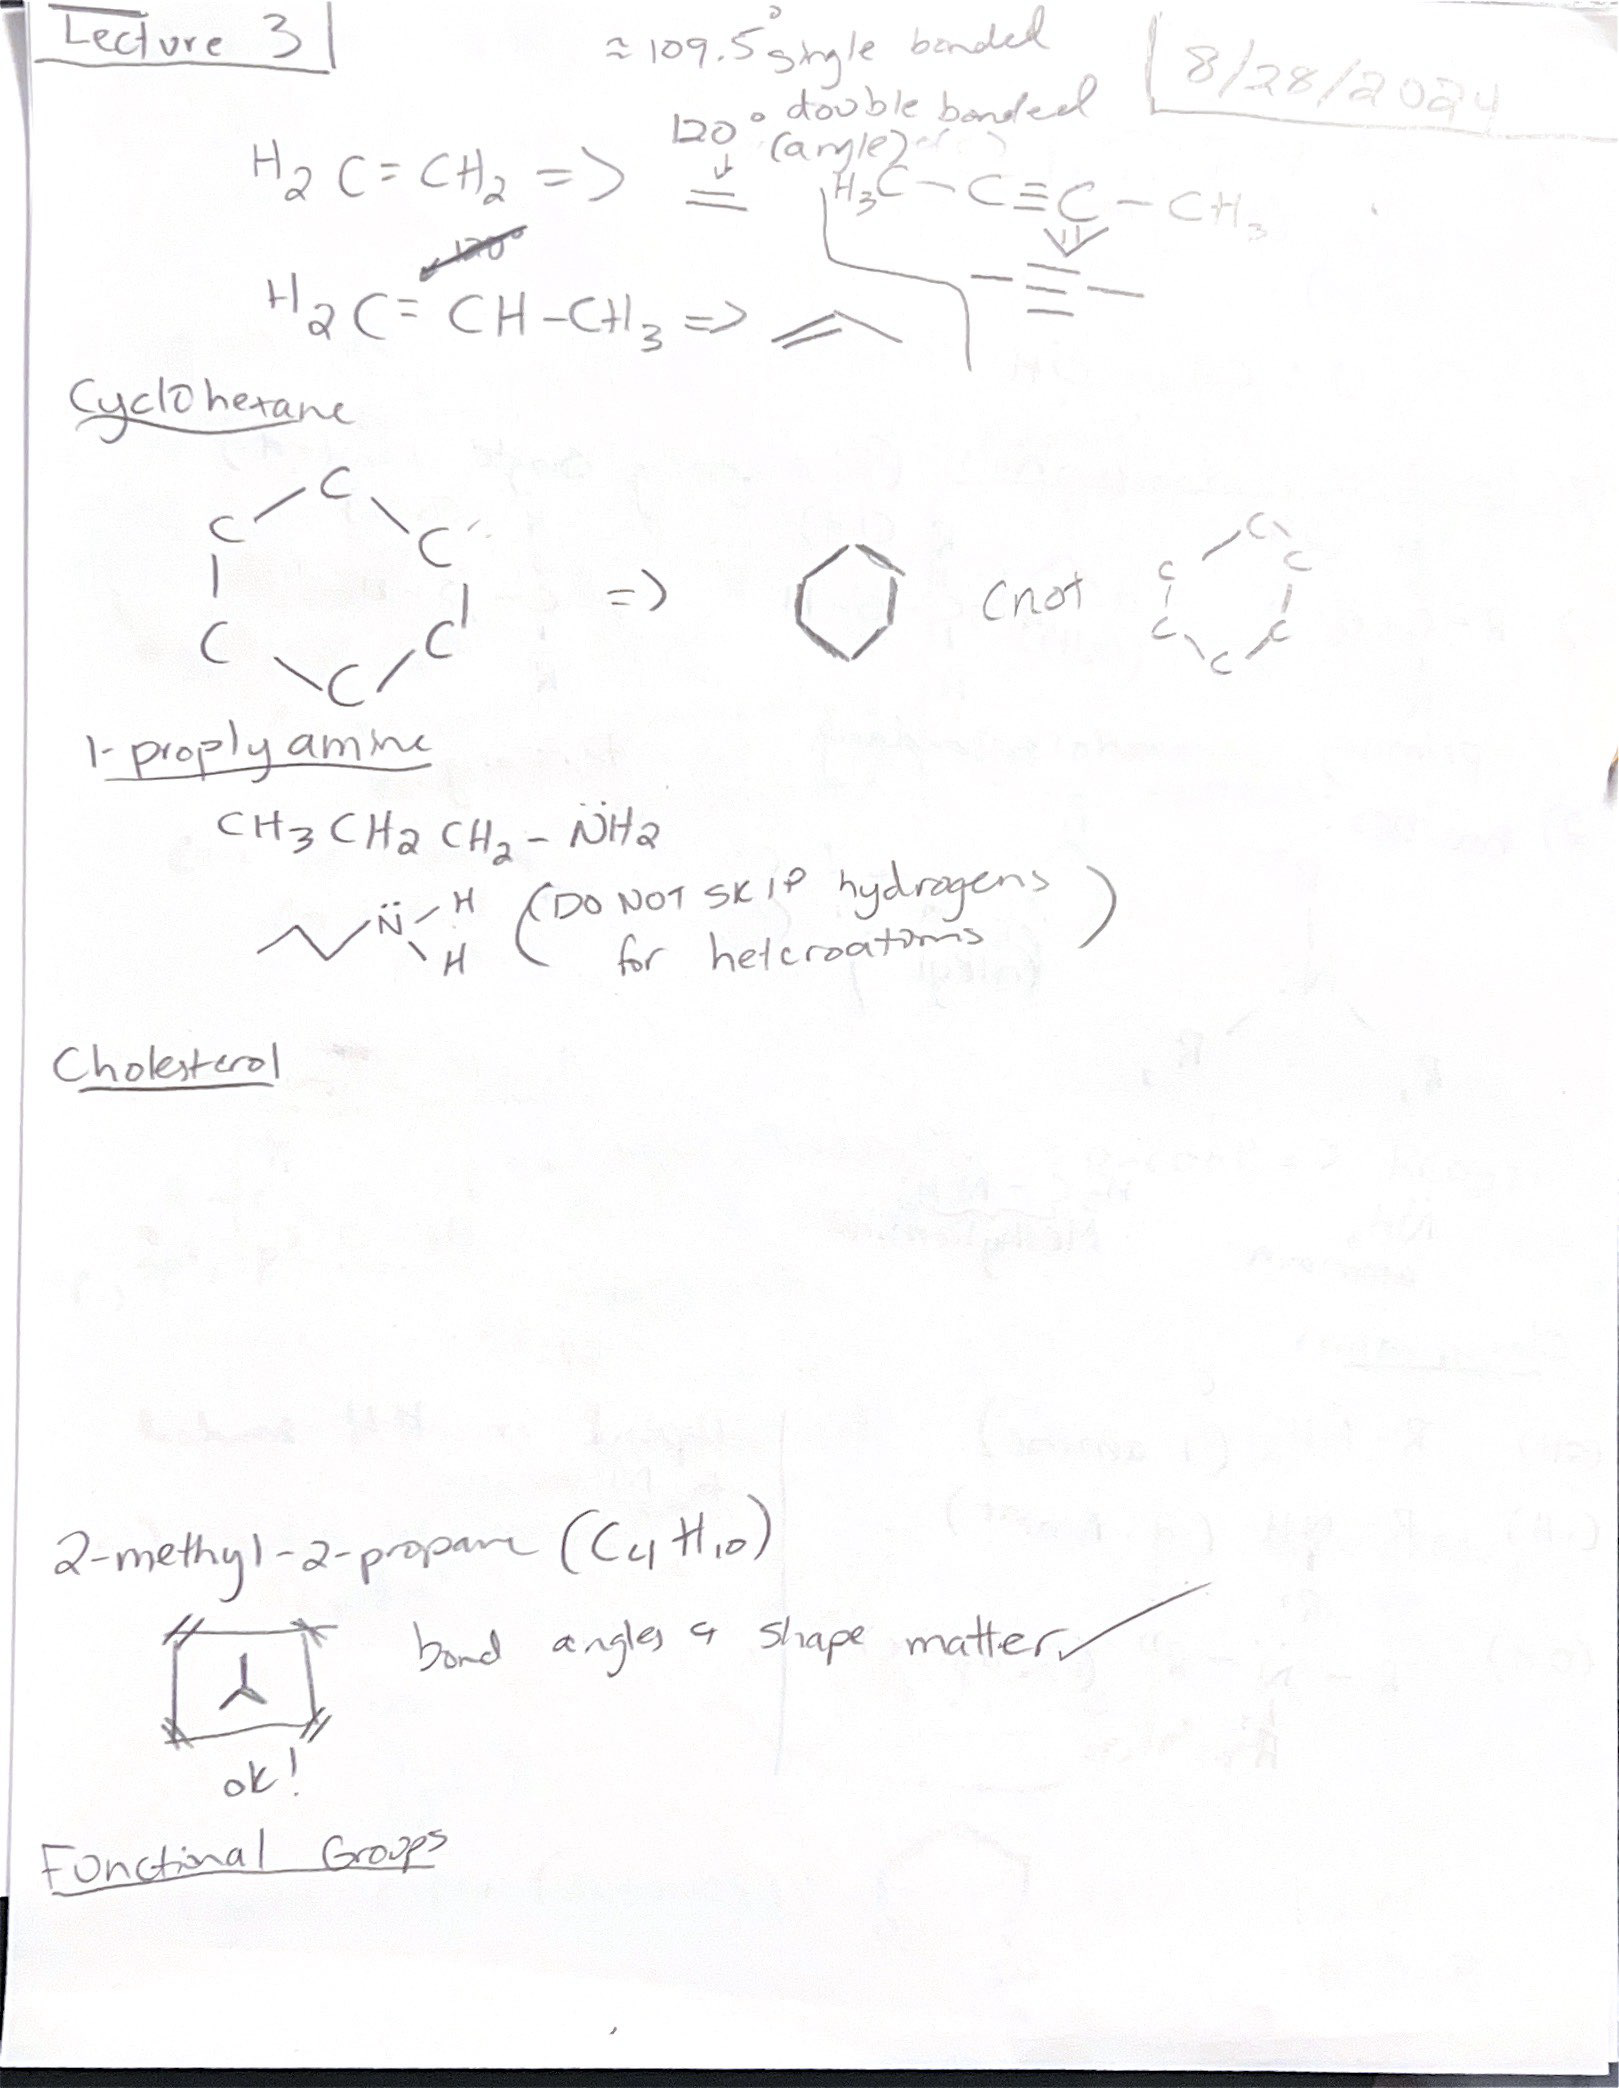 Lecture 3
8/28/2024
≈ 109.5° single bonded
120° double bonded
(angle)
H2C=CH2 =>
H3C-C≡C-CH3
120°
H2C=CH-CH3 =>
Cyclohexane
C
C C
C C
C
=>
(not
C
C C
C C
C
1-proplyamine
CH3CH2CH2-N̈H2
N̈ H
H
(DO NOT SKIP hydrogens
for heteroatoms)
Cholesterol
2-methyl-2-propane (C4H10)
bond angles & shape matter ✓
ok!
Functional Groups